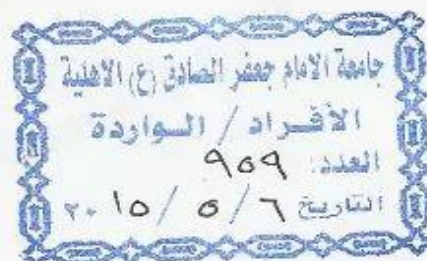 جامعة الامام جعفر الصادق (ع) الاهلية
الأفراد / الواردة
العدد: ٩٥٩
التاريخ ٦ / ٥ / ٢٠١٥